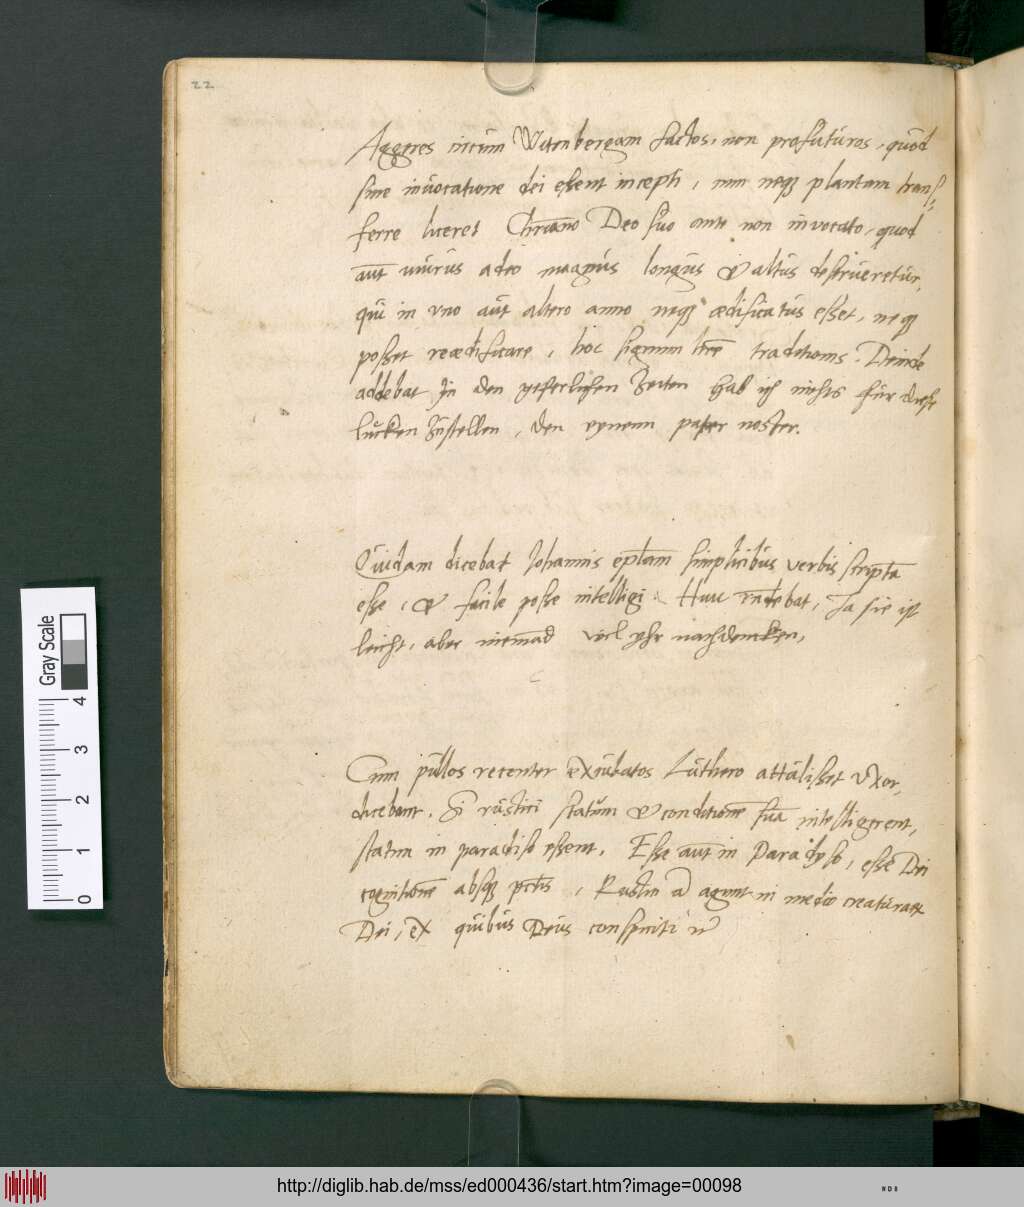 22
Aggeres circum Witenbergam factos, non profuturos, quod
sine inuocatione dei essent incepti, cum neqz plantam trans=
ferre liceret Chriano Deo suo ante non invocato, quod
aut murus adeo magnus longus & altus destrueretur,
qui in vno aut altero anno neqz ædificatus esset, neqz
posset reædificare, hoc signum traditionis. Deinde
addebat In den geferlichen Zeiten hab ich nichts fur diese
lucken zustellen, den eynenn pater noster.
Quidam dicebat Johannis eplam simplicibus verbis scripta
esse, & facile posse intelligi. Huic rndebat, Ja sie ist
leicht, aber niemad wil yhr nachdencken,
Cum pullos recenter excubatos Luthero attulisset vxor,
dicebant. Si rustici statum & conditione sua intelligerent,
statim in paradiso essent. Esse aut in Paradyso, esse Dei
cognitione absqz pctis, Rustici agunt in medio creaturarum
Dei, ex quibus Deus conspiciti
Gray Scale
0 1 2 3 4
http://diglib.hab.de/mss/ed000436/start.htm?image=00098
WDB